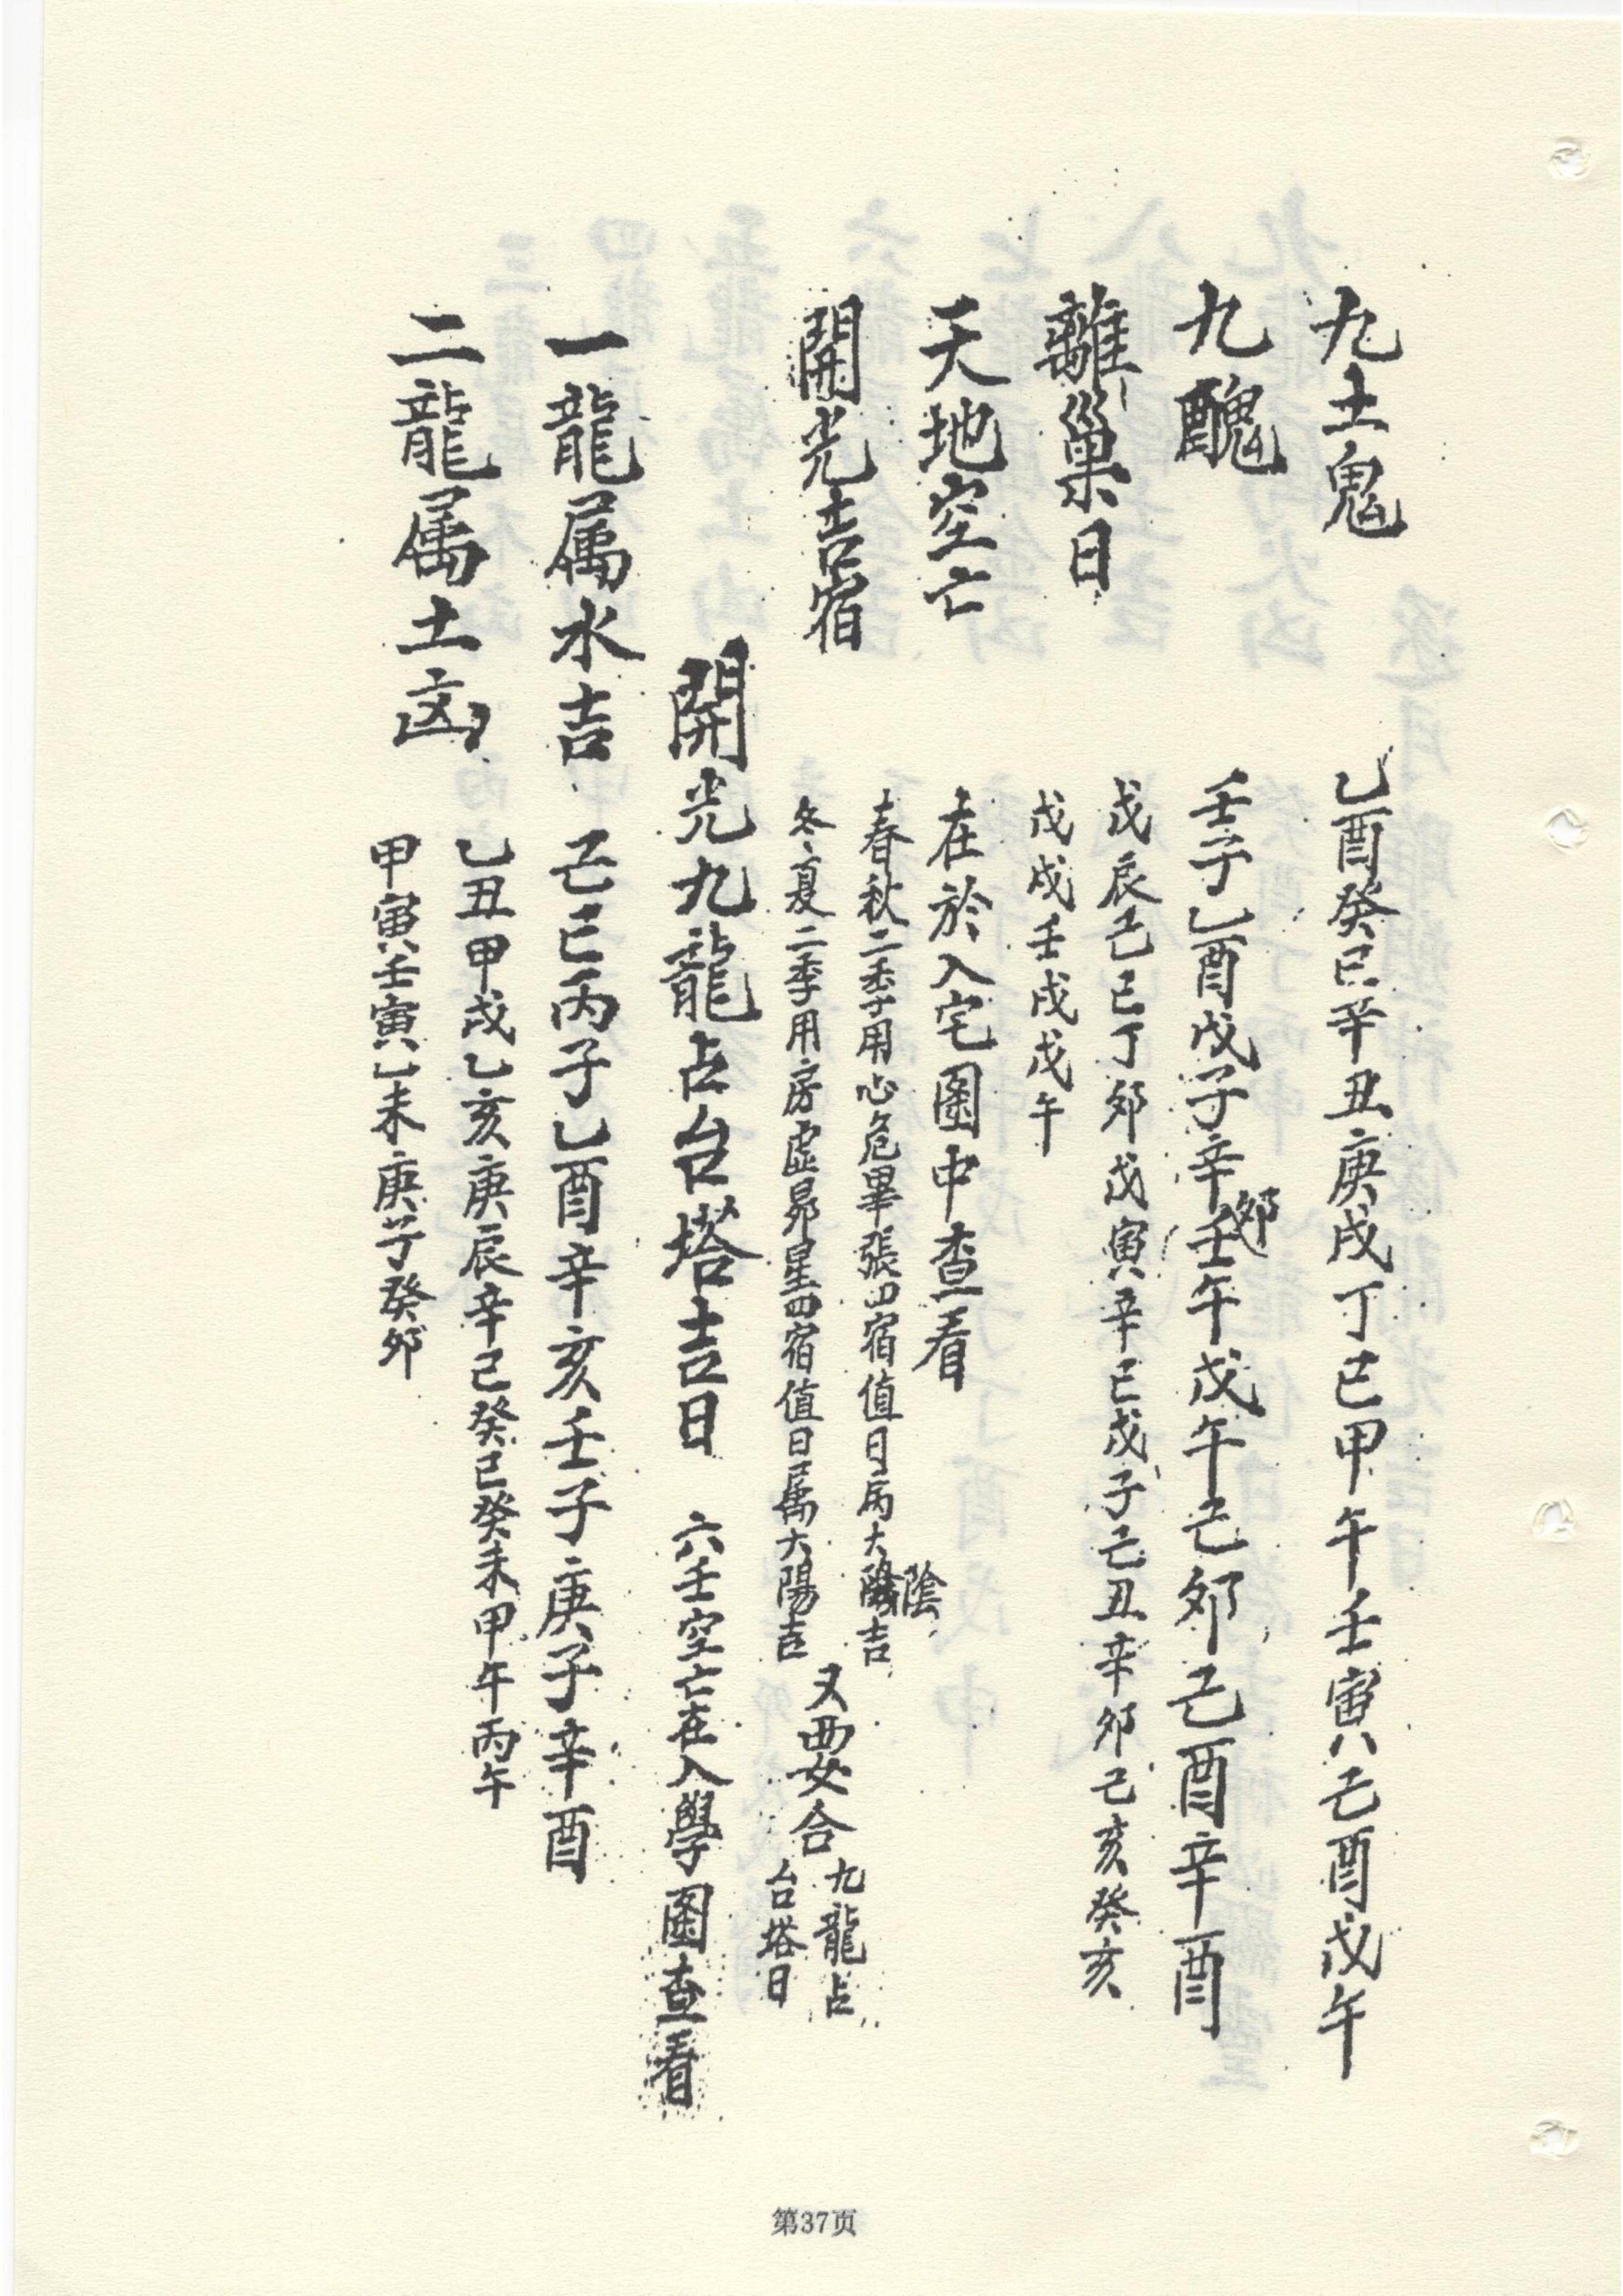 九土鬼 乙酉癸巳辛丑庚戌丁巳甲午壬寅己酉戊午
九醜 壬子乙酉戊子辛卯壬午戊午己卯己酉辛酉
離巢日 戊辰己巳丁卯戊寅辛巳戊子己丑辛卯己亥癸亥
戊戌壬戌戊午
天地空亡 在於入宅圖中查看
開光吉宿 春秋二季用心危畢張四宿值日属太陰吉
冬夏二季用房虛昴星四宿值日属太陽吉
又要合 九龍占
台塔日
開光九龍占台塔吉日 六壬空亡在入學圖查看
一龍属水吉 己巳丙子乙酉辛亥壬子庚子辛酉
二龍属土凶 乙丑甲戌乙亥庚辰辛巳癸巳癸未甲午丙午
甲寅壬寅乙未庚子癸卯
第37页